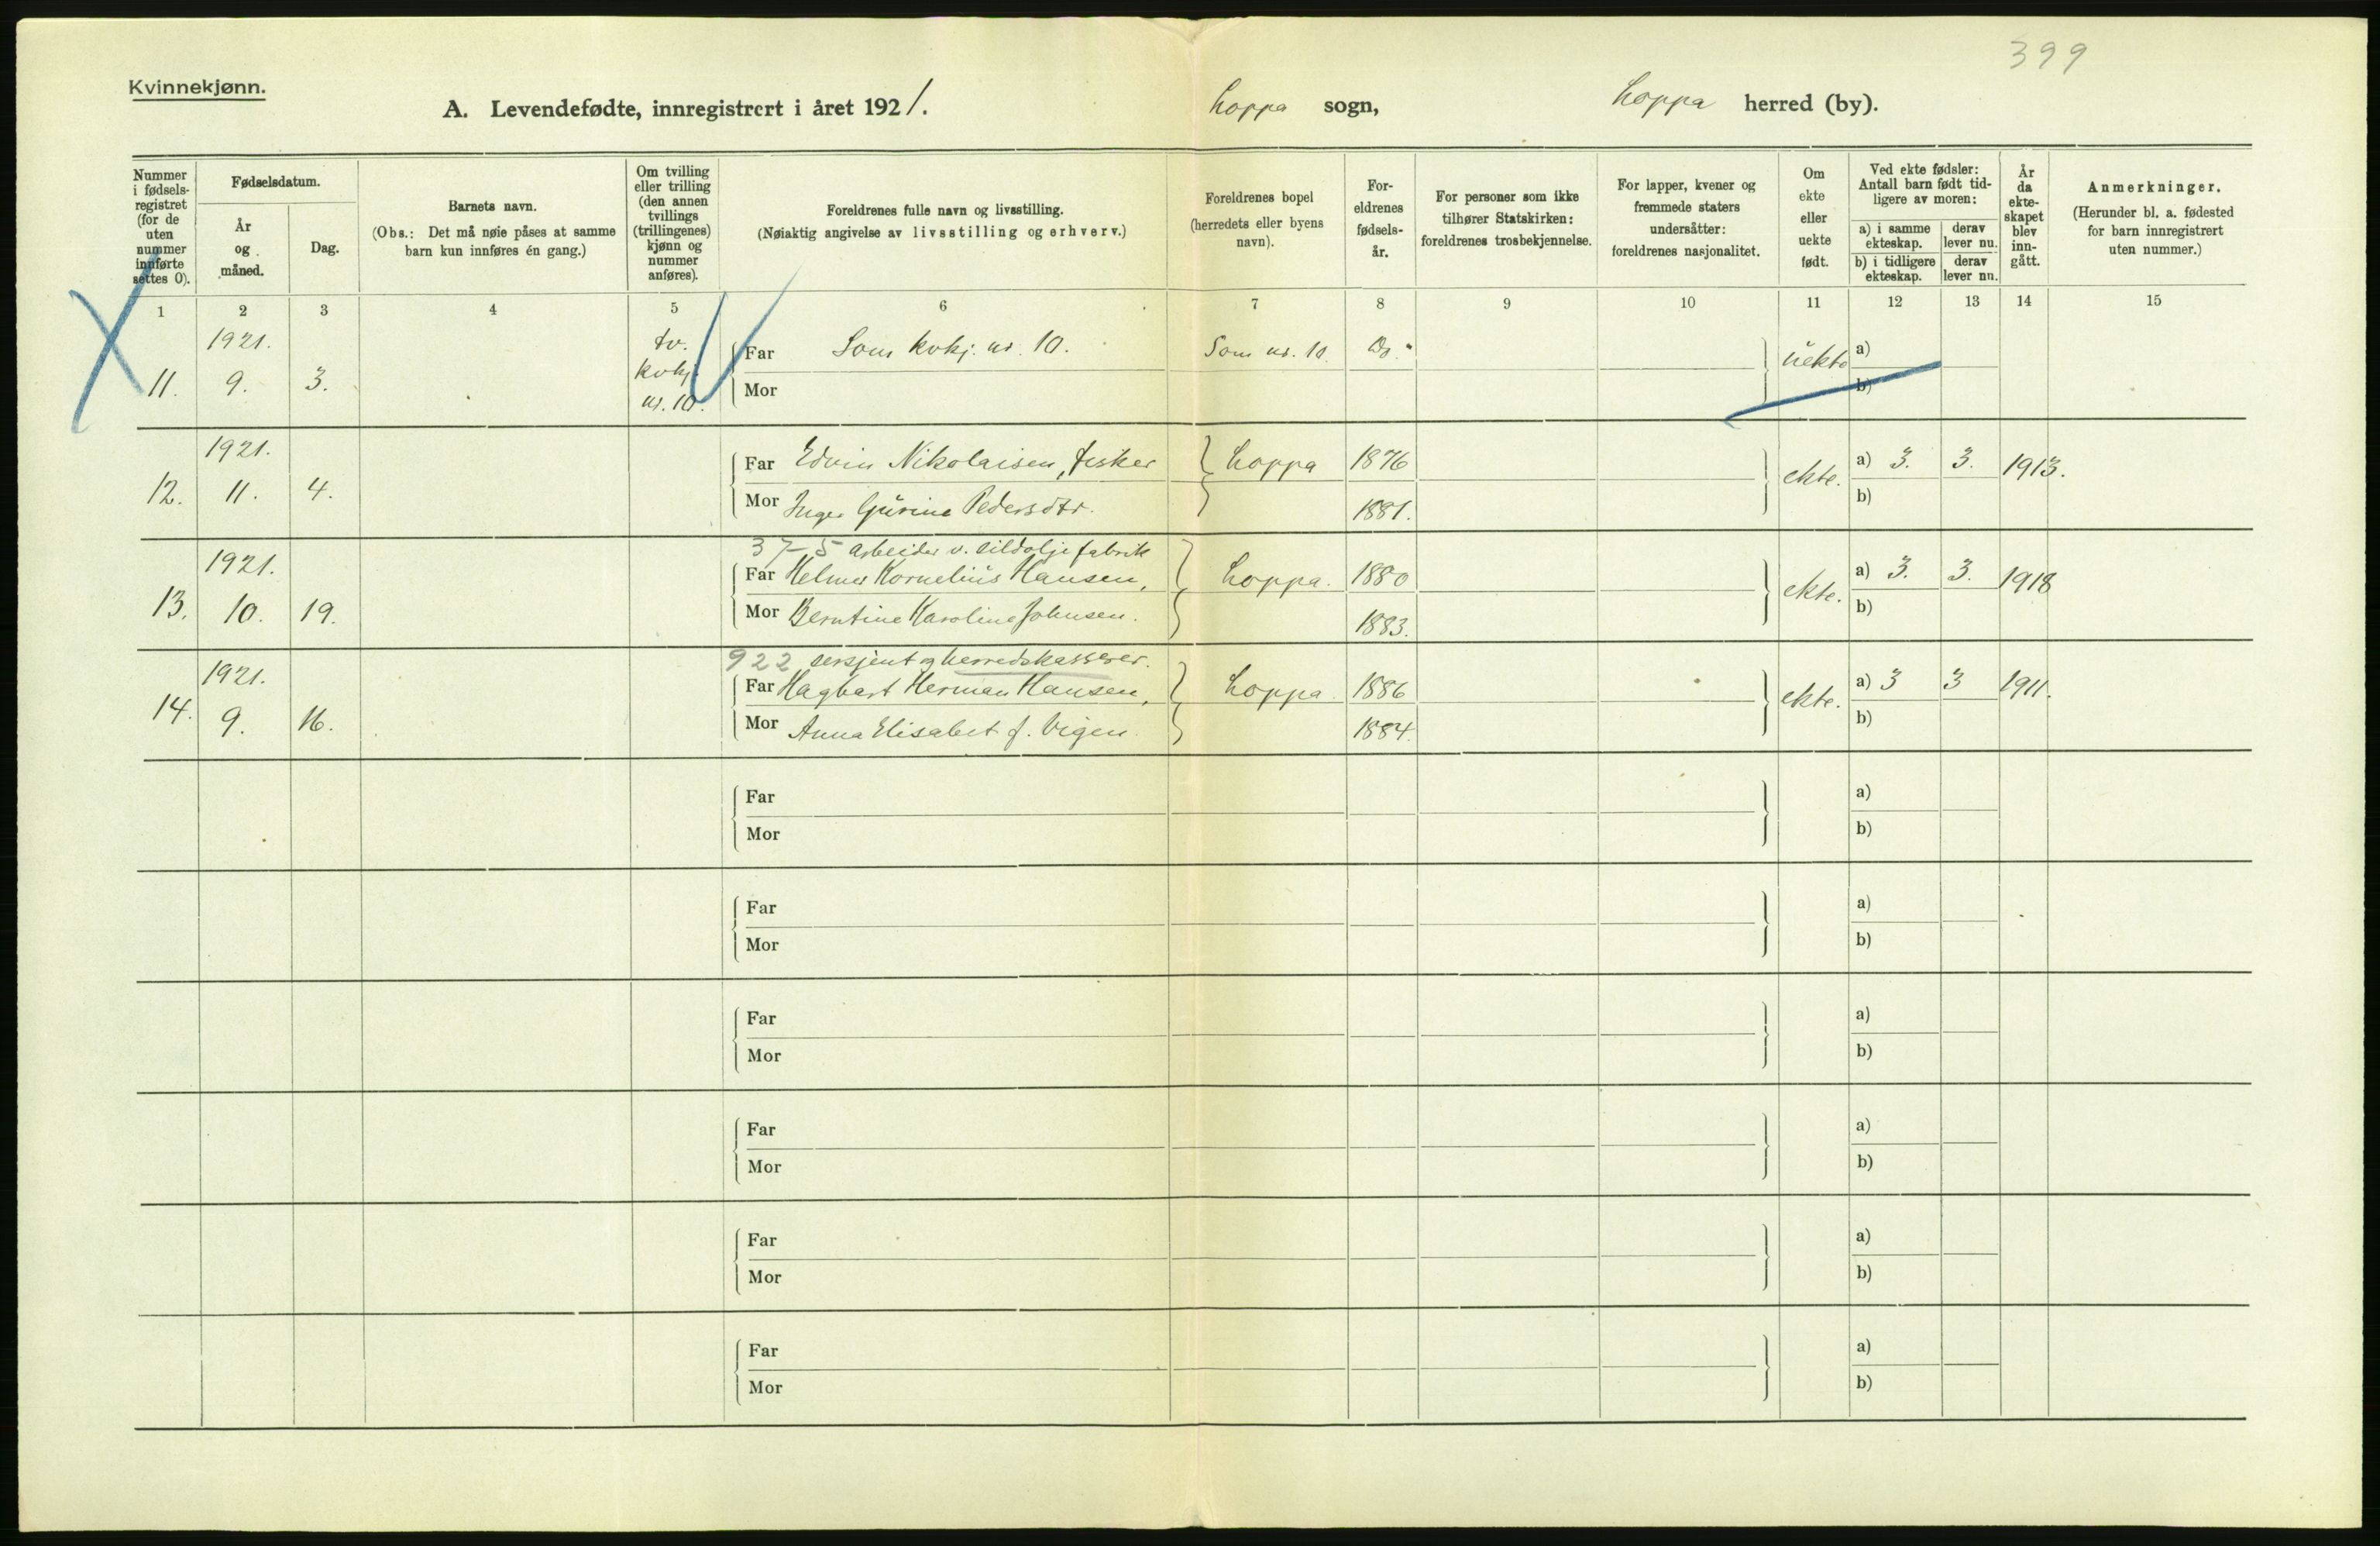 399
Kvinnekjønn.
A. Levendefødte, innregistrert i året 1921. Loppa sogn, Loppa herred (by).
Nummer i fødsels-registret (for de uten nummer innførte settes 0).
Fødselsdatum.
År og måned.
Dag.
Barnets navn.
(Obs.: Det må nøie påses at samme barn kun innføres én gang.)
Om tvilling eller trilling (den annen tvillings (trillingenes) kjønn og nummer anføres).
Foreldrenes fulle navn og livsstilling.
(Nøiaktig angivelse av livsstilling og erhverv.)
Foreldrenes bopel (herredets eller byens navn).
For-eldrenes fødsels-år.
For personer som ikke tilhører Statskirken: foreldrenes trosbekjennelse.
For lapper, kvener og fremmede staters undersåtter: foreldrenes nasjonalitet.
Om ekte eller uekte født.
Ved ekte fødsler: Antall barn født tid-ligere av moren:
a) i samme ekteskap. derav lever nu.
b) i tidligere ekteskap. derav lever nu.
År da ekte-skapet blev inn-gått.
Anmerkninger.
(Herunder bl. a. fødested for barn innregistrert uten nummer.)
1 2 3 4 5 6 7 8 9 10 11 12 13 14 15
11. 1921. 9. 3. tv. kvkj. nr. 10. Far Som kvkj. nr. 10. Som nr. 10. Do. uekte a)
Mor b)
12. 1921. 11. 4. Far Edvin Nikolaisen, fisker Loppa 1876 ekte. a) 3. 3. 1913.
Mor Inger Gurine Pedersdtr. 1881. b)
37-5 arbeider v. sildoljefabrik
13. 1921. 10. 19. Far Helmer Kornelius Hansen, Loppa. 1880 ekte. a) 3. 3. 1918
Mor Berntine Karoline Johnsen. 1883. b)
922 sersjent og herredskasserer.
14. 1921. 9. 16. Far Hagbart Herman Hansen, Loppa. 1886 ekte. a) 3 3 1911.
Mor Anna Elisabet f. Vigen. 1884. b)
Far a)
Mor b)
Far a)
Mor b)
Far a)
Mor b)
Far a)
Mor b)
Far a)
Mor b)
Far a)
Mor b)